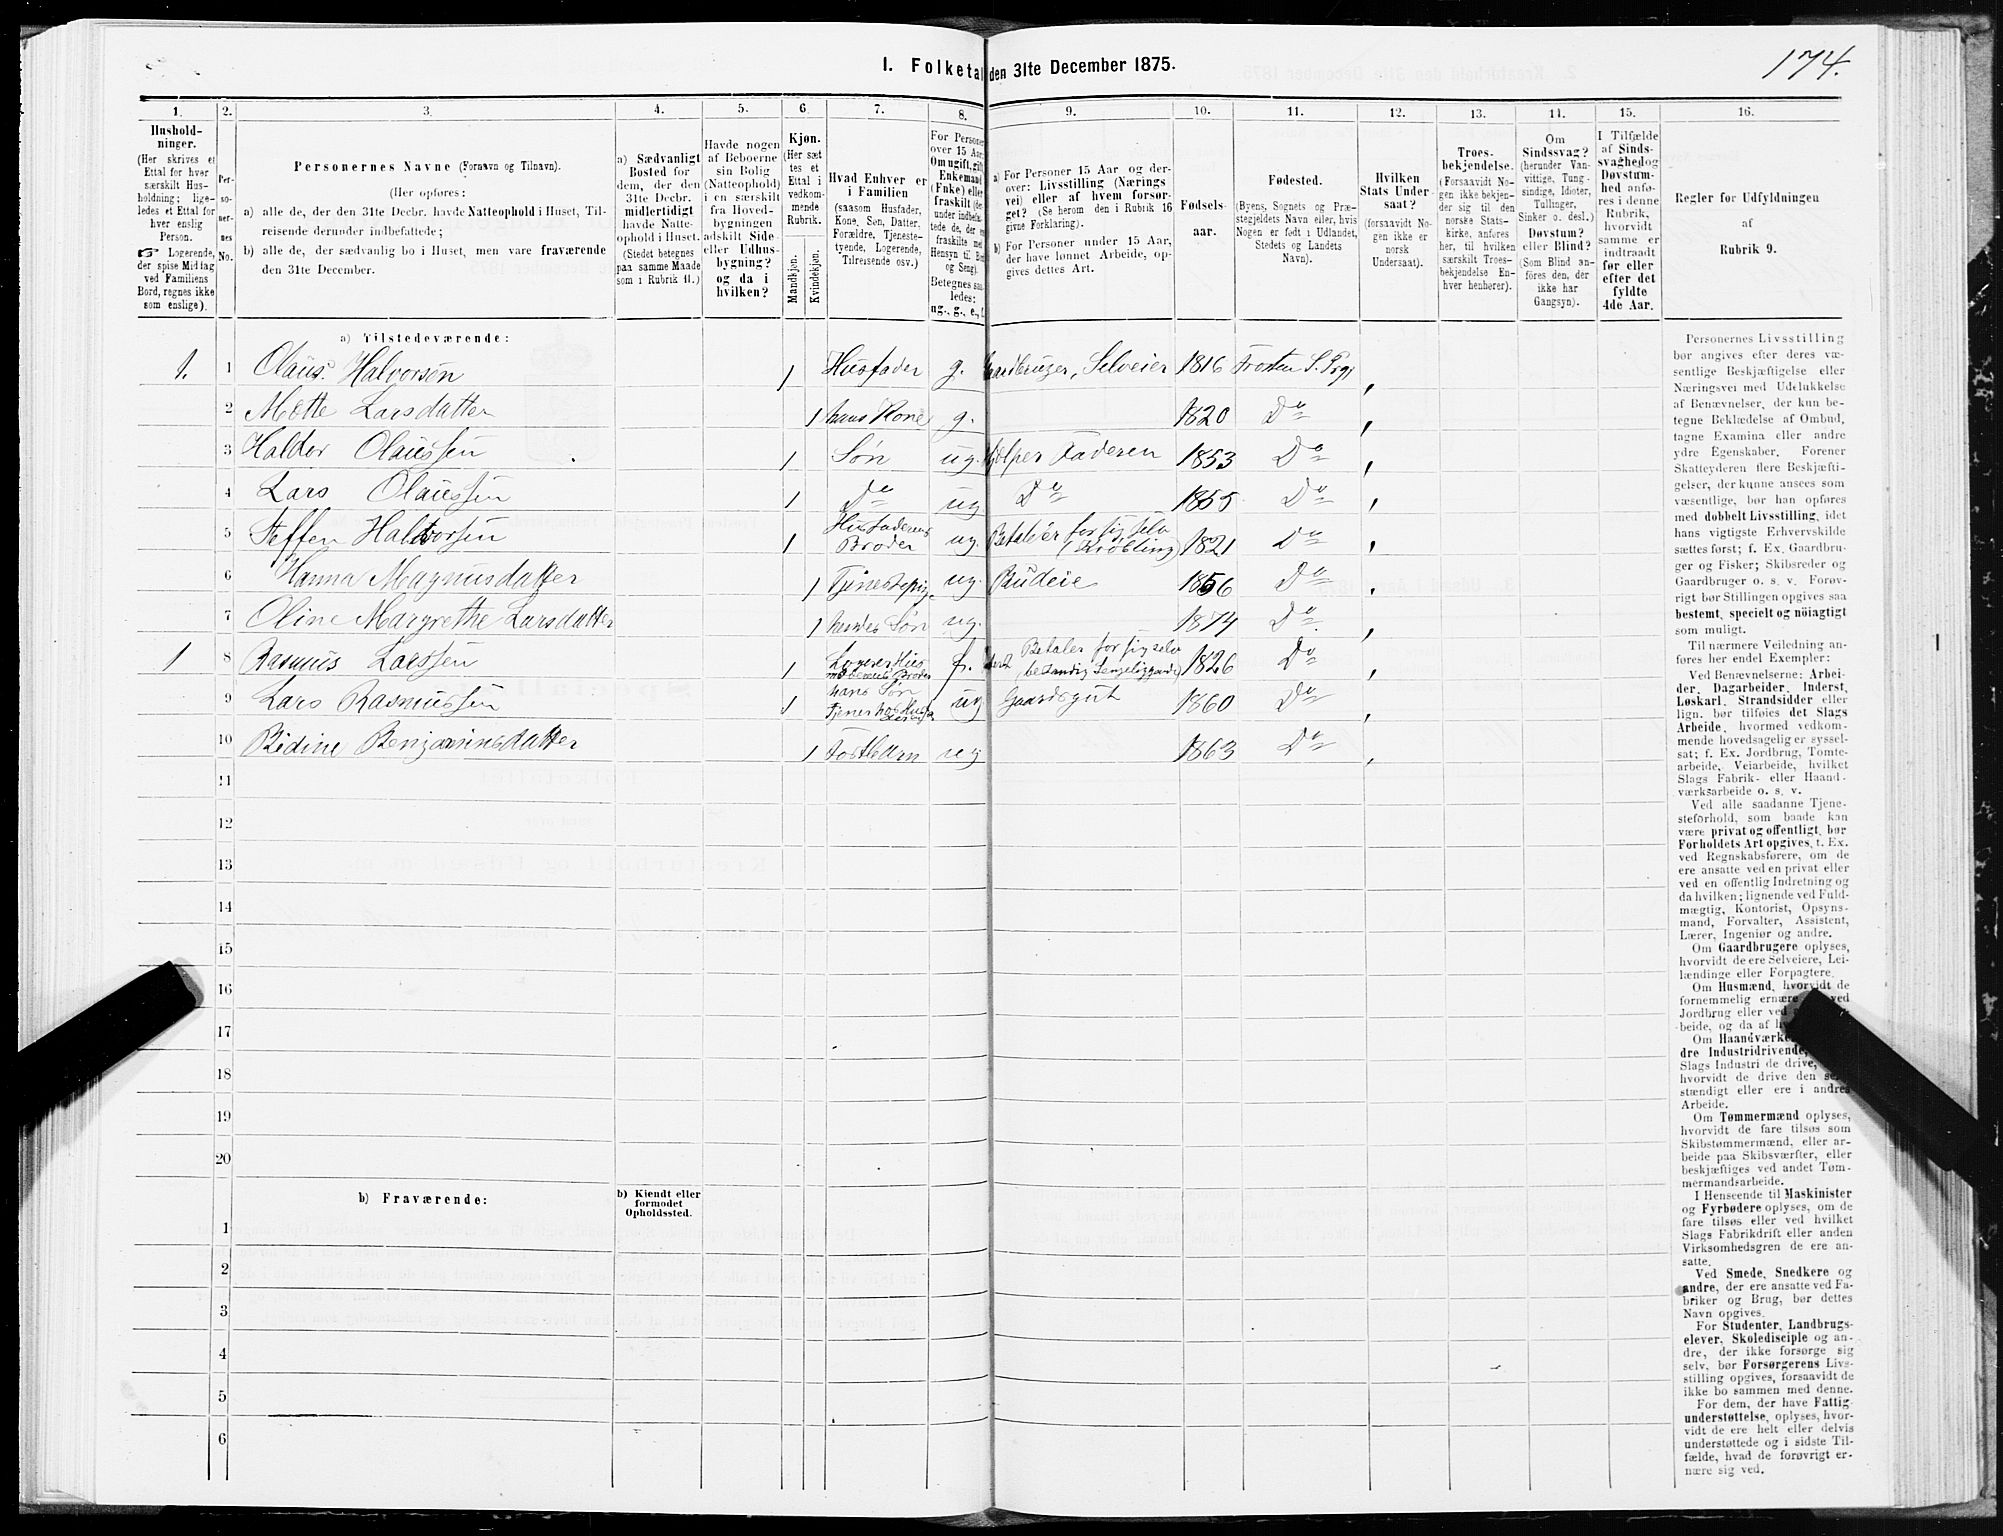 174.
I. Folketal den 31te December 1875.
1. 2. 3. 4. 5. 6. 7. 8. 9. 10. 11. 12. 13. 14. 15. 16.
Hushold-
ninger.
(Her skrives et
Ettal for hver
særskilt Hus-
holdning; lige-
ledes et Ettal for
hver enslig
Person.
☞ Logerende,
der spise Middag
ved Familiens
Bord, regnes ikke
som enslige).
Per-
so-
ner-
nes
No.
Personernes Navne (Fornavn og Tilnavn).
(Her opføres:
a) alle de, der den 31te Decbr. havde Natteophold i Huset, Til-
reisende derunder indbefattede;
b) alle de, der sædvanlig bo i Huset, men vare fraværende
den 31te December.
a) Sædvanligt
Bosted for
dem, der den
31te Decbr.
midlertidigt
havde Natte-
ophold i Huset.
(Stedet betegnes
paa samme Maade
som i Rubrik 11.)
Havde nogen
af Beboerne
sin Bolig
(Natteophold)
i en særskilt
fra Hoved-
bygningen
adskilt Side-
eller Udhus-
bygning?
og da i
hvilken?
Kjøn.
(Her sæt-
tes et
Ettal i
vedkom-
mende
Rubrik.
Mandkjøn.
Kvindekjøn.
Hvad Enhver er
i Familien
(saasom Husfader,
Kone, Søn, Datter,
Forældre, Tjeneste-
tyende, Logerende,
Tilreisende osv.)
For Personer
over 15 Aar
Om ugift, gift,
Enkemand
(Enke) eller
fraskilt
Betegnes saa-
ledes:
ug., g., e., f.
a) For Personer 15 Aar og der-
over: Livsstilling (Nærings
vei) eller af hvem forsør-
get? (Se herom den i Rubrik 16
givne Forklaring).
b) For Personer under 15 Aar,
der have lønnet Arbeide, op-
gives dettes Art.
Fødsels-
aar.
Fødested.
(Byens, Sognets og Præ-
stegjeldets Navn eller, hvis
Nogen er født i Udlandet,
Stedets og Landets
Navn).
Hvilken
Stats Under-
saat?
(forsaavidt No-
gen ikke er
norsk
Undersaat).
Troes-
bekjendelse.
(Forsaavidt No-
gen ikke bekjen-
der sig til den
norske Stats-
kirke, anføres
her, til hvilken
særskilt Troes-
bekjendelse En-
hver henhører).
Om
Sindssvag?
(herunder Van-
vittige, Tung-
sindige, Idioter,
Tullinger,
Sinker o. desl.)
Døvstum?
eller Blind?
(Som Blind an-
føres den, der
ikke har
Gangsyn).
I Tilfælde
af Sinds-
svaghed og
Døvstum-
hed anfø-
res i denne
Rubrik,
hvorvidt
samme er
indtraadt
før eller
efter det
fyldte
4de Aar.
Regler for Udfyldningen
af
Rubrik 9.
a) Tilstedeværende:
1. 1 Olaus Halvorsen 1 Husfader g. Gaardbruger, Selveier 1816 Frosten S. Prgj ,
2 Mette Larsdatter 1 hans Kone g. 1820 Do ,
3 Haldor Olaussen 1 Søn ug. Hjelper Faderen 1853 Do ,
4 Lars Olaussen 1 Do ug Do 1855 Do ,
5 Steffen Halvorsen 1 Husfaderens Broder ug. Betaler for sig selv (Krøbling) 1821 Do ,
6 Hanna Magnusdatter 1 Tjenestepige ug. Budeie 1856 Do ,
7 Oline Margrethe Larsdatter 1 hendes Søn ug. 1874 Do ,
1 8 Rasmus Larssen 1 Logerer Hus moderens Broder f. Betaler for sig selv (bestandig Sengeliggende) 1826 Do ,
9 Lars Rasmussen 1 hans Søn Tjener hos ug Gaardsgut 1860 Do ,
10 Benjaminsdatter 1 Fosterbarn ug 1863 Do ,
11
12
13
14
15
16
17
18
19
20
b) Fraværende:
b) Kjendt eller
formodet
Opholdssted.
1
2
3
4
5
6
Personernes Livsstilling
bør angives efter deres væ-
sentlige Beskjæftigelse eller
Næringsvei med Udelukkelse
af Benævnelser, der kun be-
tegne Beklædelse af Ombud,
tagne Examina eller andre
ydre Egenskaber. Forener
Skatteyderen flere Beskjæfti-
gelser, der kunne ansees som
væsentlige, bør han opføres
med dobbelt Livsstilling, idet
hans vigtigste Erhvervskilde
sættes først; f. Ex. Gaardbru-
ger og Fisker; Skibsreder og
Gaardbruger o. s. v. Forøv-
rigt bør Stillingen opgives saa
bestemt, specielt og nöiagtigt
som muligt.
Til nærmere Veiledning an-
føres her endel Exempler:
Ved Benævnelserne: Arbei-
der, Dagarbeider, Inderst,
Løskarl, Strandsidder eller
lign. bør tilføies det Slags
Arbeide, hvormed vedkom-
mende hovedsagelig er syssel-
sat; f. Ex. Jordbrug, Tomte-
arbeide, Veiarbeide, hvilket
Slags Fabrik- eller Haand-
værksarbeide o. s. v.
Ved alle saadanne Tjene-
steforhold, som baade kan
være privat og offentligt, bør
Forholdets Art opgives, f. Ex.
ved Regnskabsførere, om de
ere ansatte ved en privat eller
ved en offentlig Indretning og
da hvilken; lignende ved Fuld-
mægtig, Kontorist, Opsyns-
mand, Forvalter, Assistent,
Lærer, Ingeniør og andre.
Om Gaardbrugere oplyses,
hvorvidt de ere Selveiere, Lei-
lændinge eller Forpagtere.
Om Husmænd, hvorvidt de
fornemmelig ernære ved
Jordbrug eller ved
beide, og da af
Om Haandværkere
dre Industridrivende,
Slags Industri de drive,
hvorvidt de drive den
stændigt eller ere i andres
Arbeide.
Om Tømmermænd oplyses,
hvorvidt de fare tilsøs som
Skibstømmermænd, eller ar-
beide paa Skibsværfter, eller
beskjæftiges ved andet Tøm-
mermandsarbeide.
I Henseende til Maskinister
og Fyrbødere oplyses, om de
fare tilsøs eller ved hvilket
Slags Fabrikdrift eller anden
Virksomhedsgren de ere an-
satte.
Ved Smede, Snedkere og
andre, der ere ansatte ved Fa-
briker og Brug, bør dettes
Navn opgives.
For Studenter, Landbrugs-
elever, Skoledisciple og an-
dre, der ikke forsørge sig
selv, bør Forsørgerens Livs-
stilling opgives, forsaavidt de
ikke bo sammen med denne.
For dem, der have Fattig-
understøttelse, oplyses, hvor-
vidt de ere helt eller delvis
understøttede og i sidste Til-
fælde, hvad de forøvrigt er-
nære sig ved.